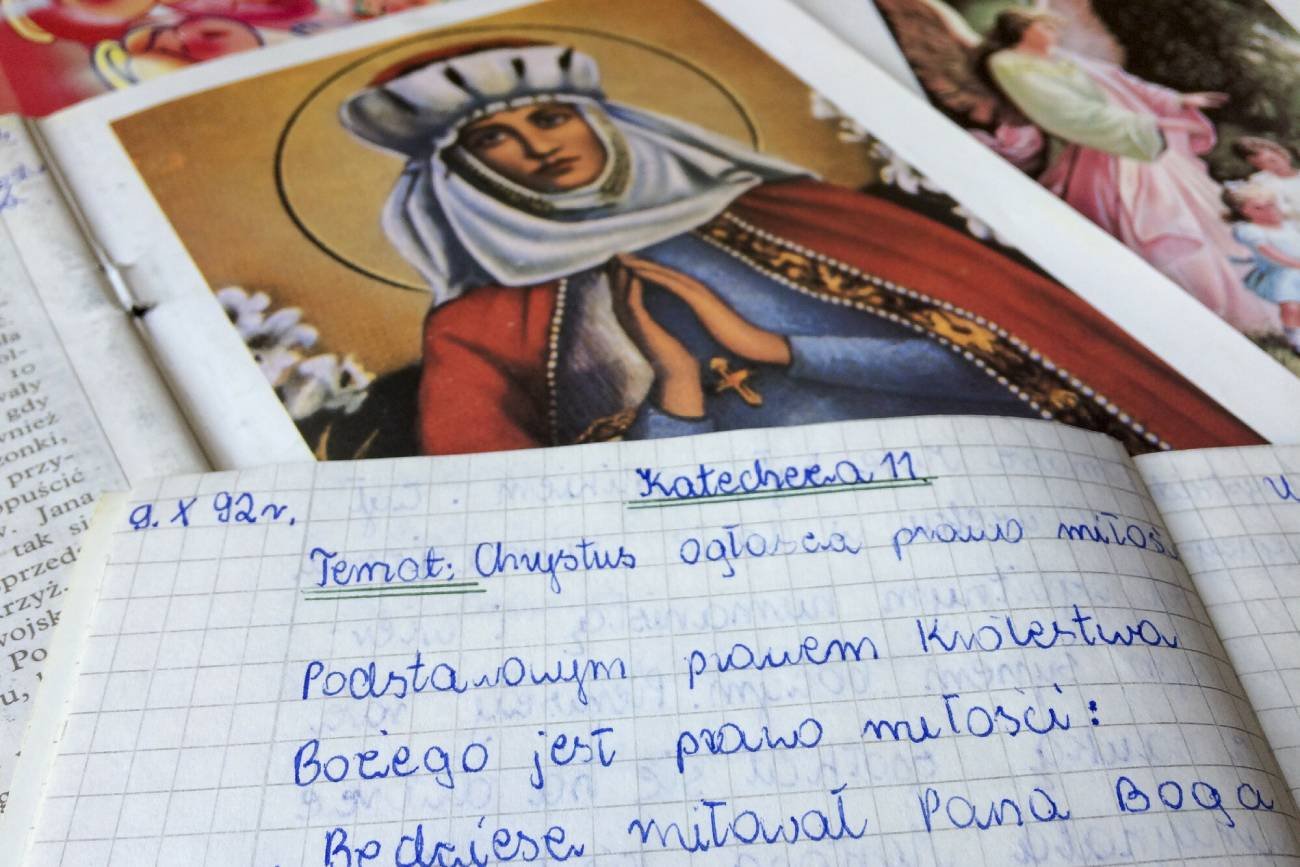 9. X 92 r.
Katecheza 11
Temat: Chrystus ogłasza prawo miłoś
Podstawowym prawem Królestwa
Bożego jest prawo miłości:
Będziesz miłował Pana Boga
ła
ol-
to
wały
gdy
wnież
zonki,
przy-
opuścić
v. Jana
tak si
przed
krzyż.
wojsk
Po
u,